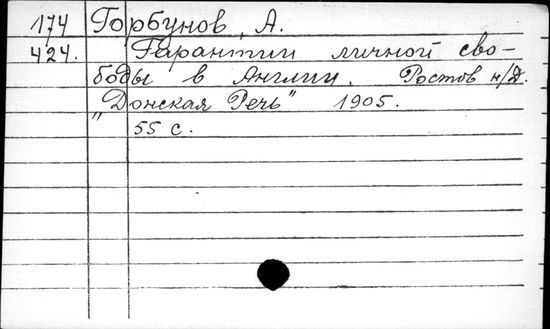 174 Горбунов, А.
424. Гарантии личной сво-
боды в Англии. Ростов н/Д.
"Донская Речь" 1905.
55 с.